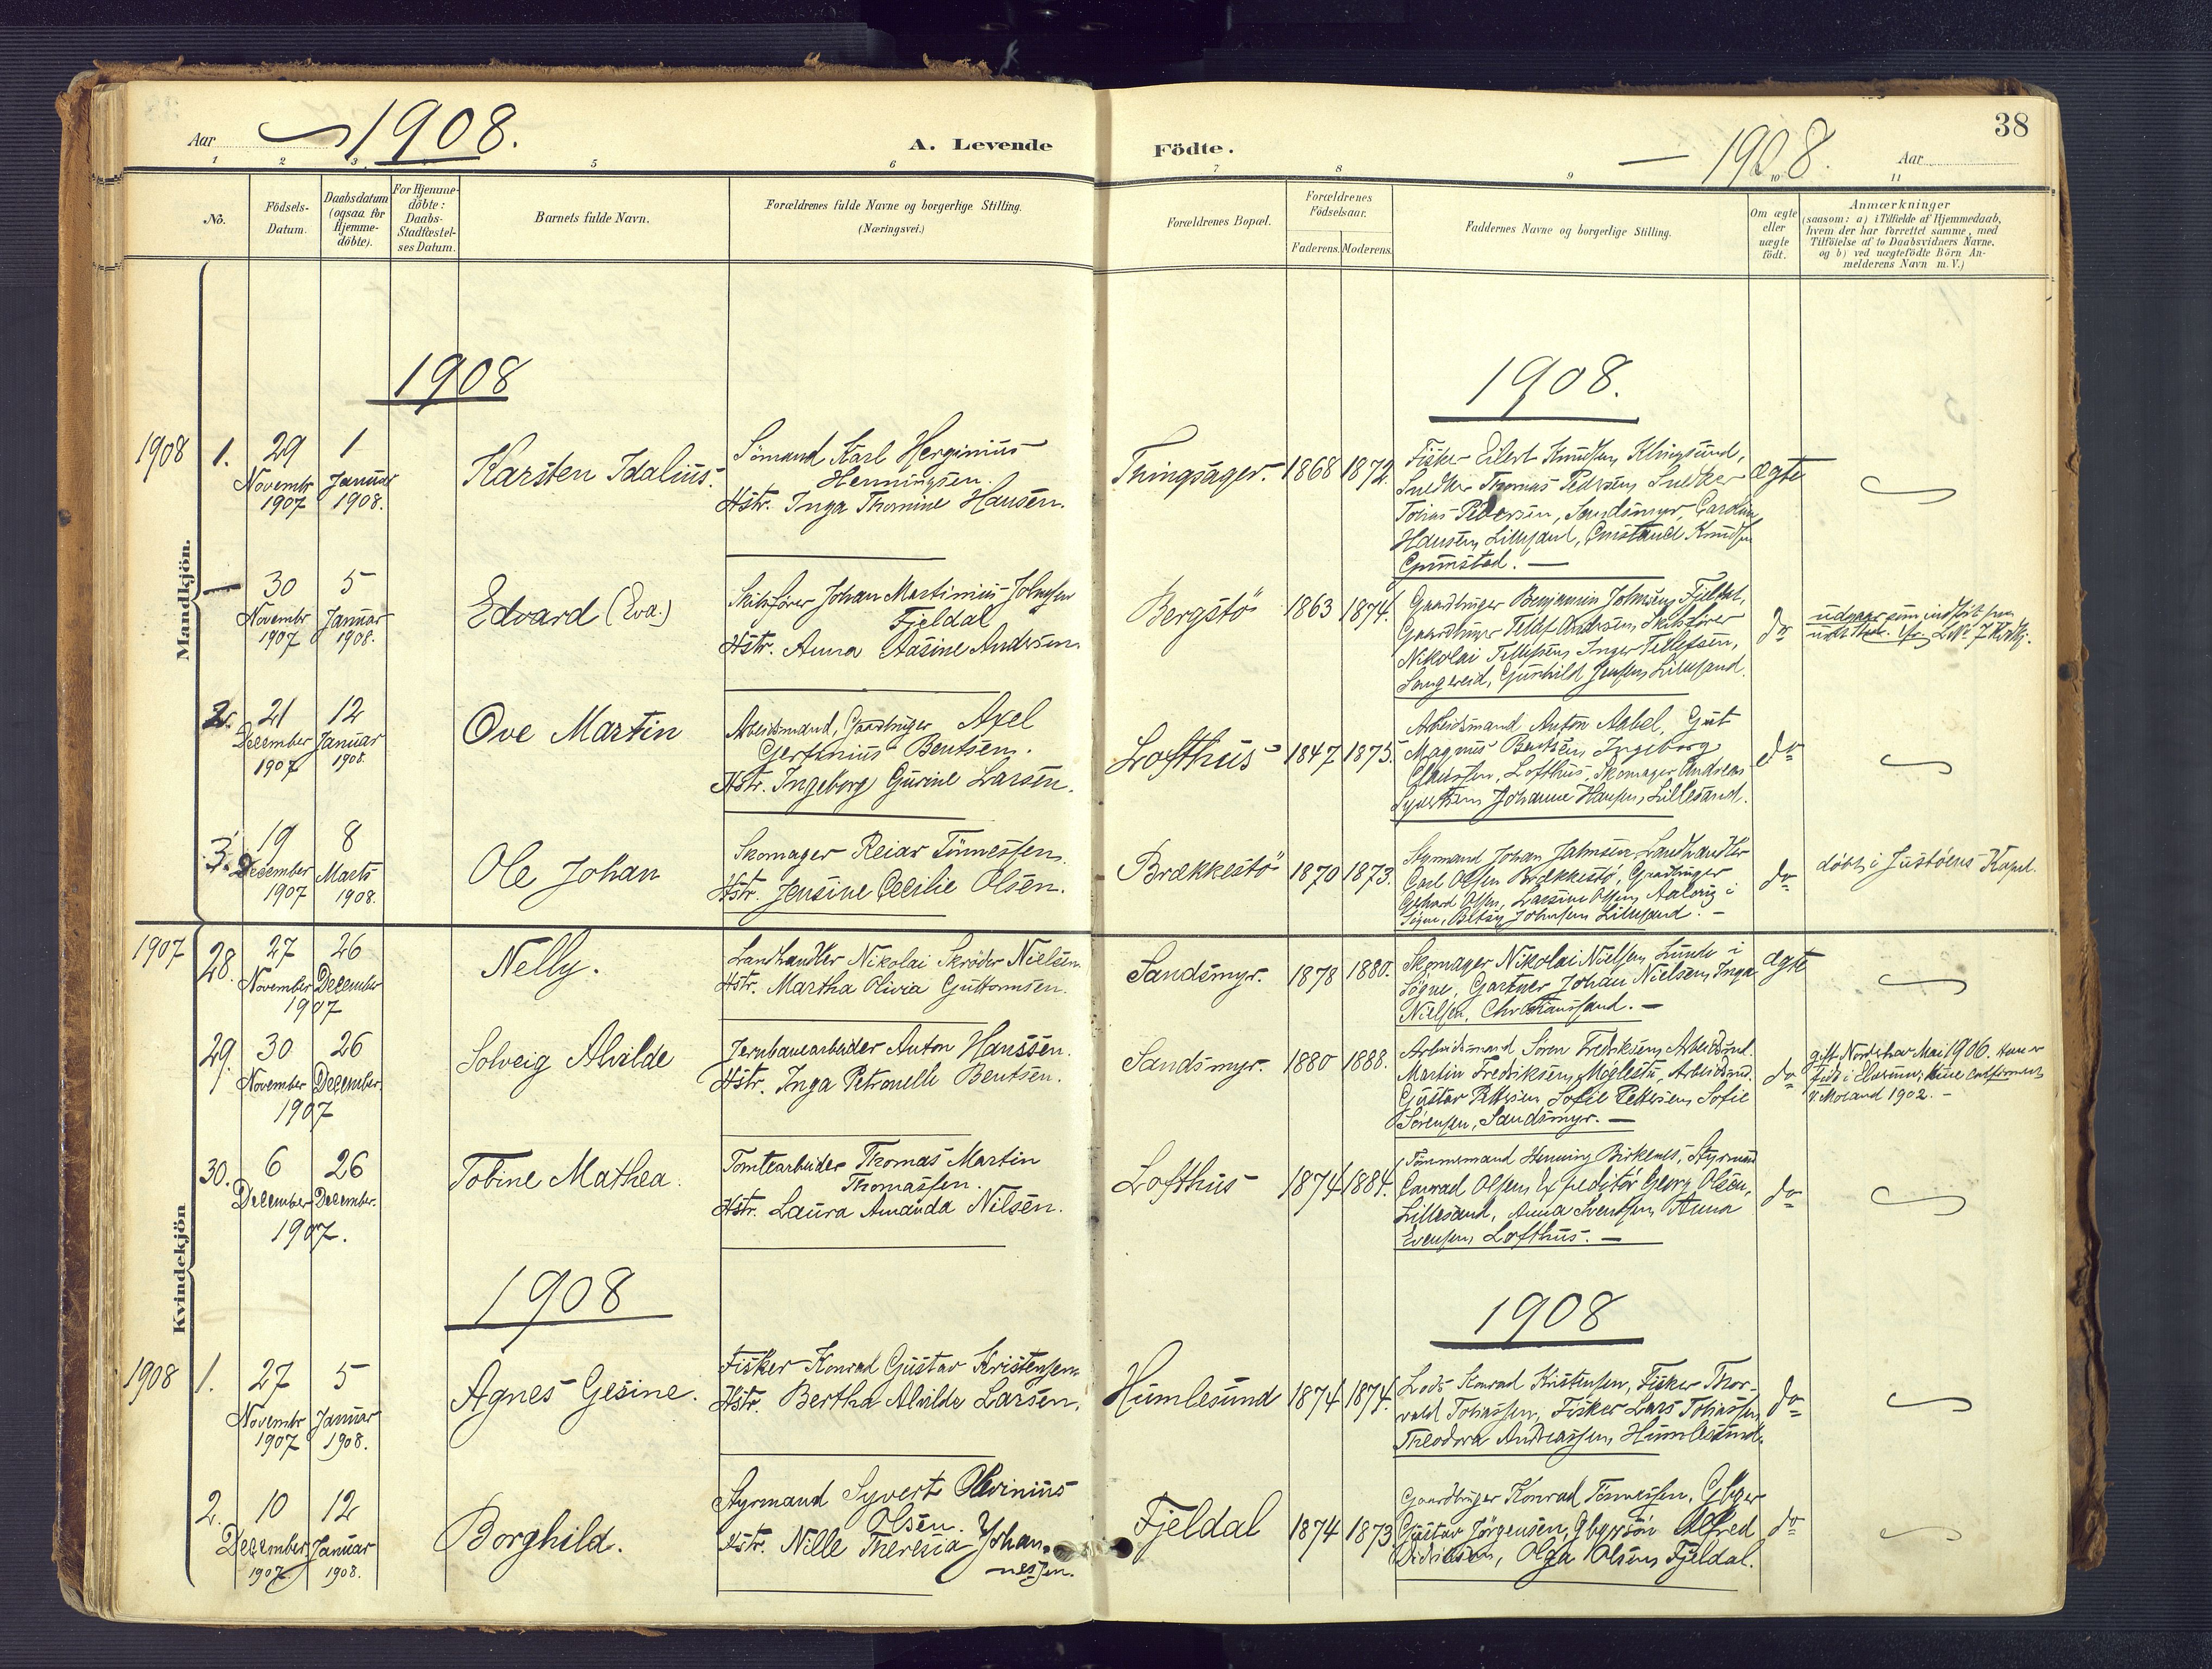 38
Aar 1908.
A. Levende
Födte.
— 1908. Aar
1 2 3 5 6 7 8 9 10 11
No.
Födsels-
Datum.
Daabsdatum
(ogsaa for
Hjemme-
döbte).
For Hjemme-
döbte:
Daabs-
Stadfæstel-
ses Datum.
Barnets fulde Navn.
Forældrenes fulde Navne og borgerlige Stilling.
(Næringsvei.)
Forældrenes Bopæl.
Forældrenes
Födselsaar.
Faderens. Moderens.
Faddernes Navne og borgerlige Stilling.
Om ægte
eller
uægte
födt.
Anmærkninger
(saasom: a) i Tilfælde af Hjemmedaab,
hvem der har forrettet samme, med
Tilföielse af to Daabsvidners Navne,
og b) ved uægtefödte Börn An-
melderens Navn m. V.)
Mandkjön.
1908
1908.
1908 1.
29
Novembr
1907
1
Januar
1908.
Karsten Idalius.
Sömand Karl Herginius
Henningsen.
Hstr. Inga Thomine Hansen.
Thingsager.
1868
1872.
Fisker Eilert Knudsen, Klingsund,
Snedker Thomas Pedersen, Snedker
Tobias Pedersen, Sandsmyr, Caroline
Hansen, Lillesand, Knudsen
Grimstad. —
ægte
30
Novembr
1907
5
Januar
1908.
Edvard (Eva.)
Skibsfører Johan Martinius Johnsen
Fjeldal
Hstr. Anna Aasine Andersen.
Bergstö
1863
1874.
Gaardbruger Benjamin Johnsen, Fjeldal,
Gaardbruger Tellef Andersen, Skibsfører
Nikolai Tellefsen, Inger Tellefsen,
Gunhild Jensen, Lillesand.
do
udgaar som indført
2.
21
December
1907
12
Januar
1908.
Ove Martin
Arbeidsmand, Gaardbruger Axel
Bentsen.
Hstr. Ingeborg Gurine Larsen.
Lofthus
1847
1875.
Arbeidsmand Anton Aabel, Gut
Magnus Bentsen, Ingeborg
Lofthus, Skomager Andreas
Syvertsen, Johanne Hansen, Lillesand.
do
3.
19
December
1907
8
Marts
1908.
Ole Johan
Skomager Reiar Tönnessen.
Hstr. Jensine Cecilie Olsen.
Brækkestö
1870
1873.
Styrmand Johan Johnsen, Landhandler
Carl Olsen Brækkestö, Gaardbruger
Gerhard Olsen, Larsine Olsen, i
Betsy Johnsen, Lillesand. —
do
döbt i Justöens Kapel.
Kvindekjön
1907 28.
27
November
26
December
1907
Nelly.
Landhandler Nikolai Skröder Nielsen.
Hstr. Martha Olivia Guttormsen.
Sandsmyr.
1878
1880.
Skomager Nikolai Nielsen, Lunde i
Sögne, Gartner Johan Nielsen, Inga
Nielsen, Christianssand. —
ægte
29.
30
November
26
December.
1907
Solveig Alvilde
Jernbanearbeider Anton Hanssen.
Hstr. Inga Petronelle Bentsen.
Sandsmyr.
1880
1888.
Arbeidsmand Sören Fredriksen, Arbeidsmd.
Martin Fredriksen, Möglestu, Arbeidsmd.
Gustav Pettersen, Sofie Pettersen, Sofie
Sörensen, Sandsmyr. —
do
gift Nordishar Mai 1906. Han er
født i Elverum;
V. Moland 1902. —
30.
6
December
26
December.
1907.
Tobine Mathea.
Tomtearbeider Thomas Martin
Thomassen.
Hstr. Laura Amanda Nilsen.
Lofthus
1874
1884.
Tömmermand Henning Birkenes, Styrmand
Conrad Olsen, Expeditör Georg Olsen,
Lillesand, Anna Svendsen, Anna
Evensen, Lofthus. —
do
1908
1908
1908 1.
27
Novembr
1907
5
Januar
1908.
Agnes Gesine.
Fisker Konrad Gustav Kristensen.
Hstr. Bertha Alvilde Larsen.
Humlesund
1874
1874.
Lods Konrad Kristensen, Fisker Thor-
vald Tobiassen, Fisker Lars Tobiassen,
Theodora Andreassen, Humlesund.
do
2.
10
December
1907.
12
Januar
1908.
Borghild.
Styrmand Syvert Olvinius
Olsen.
Hstr. Nille Theresia Johan-
nessen.
Fjeldal
1874
1873
Gaardbruger Konrad Tönnessen, Gbger
Gustav Jörgensen, Gbgersön Alfred
Didriksen, Olga Olsen, Fjeldal.
do